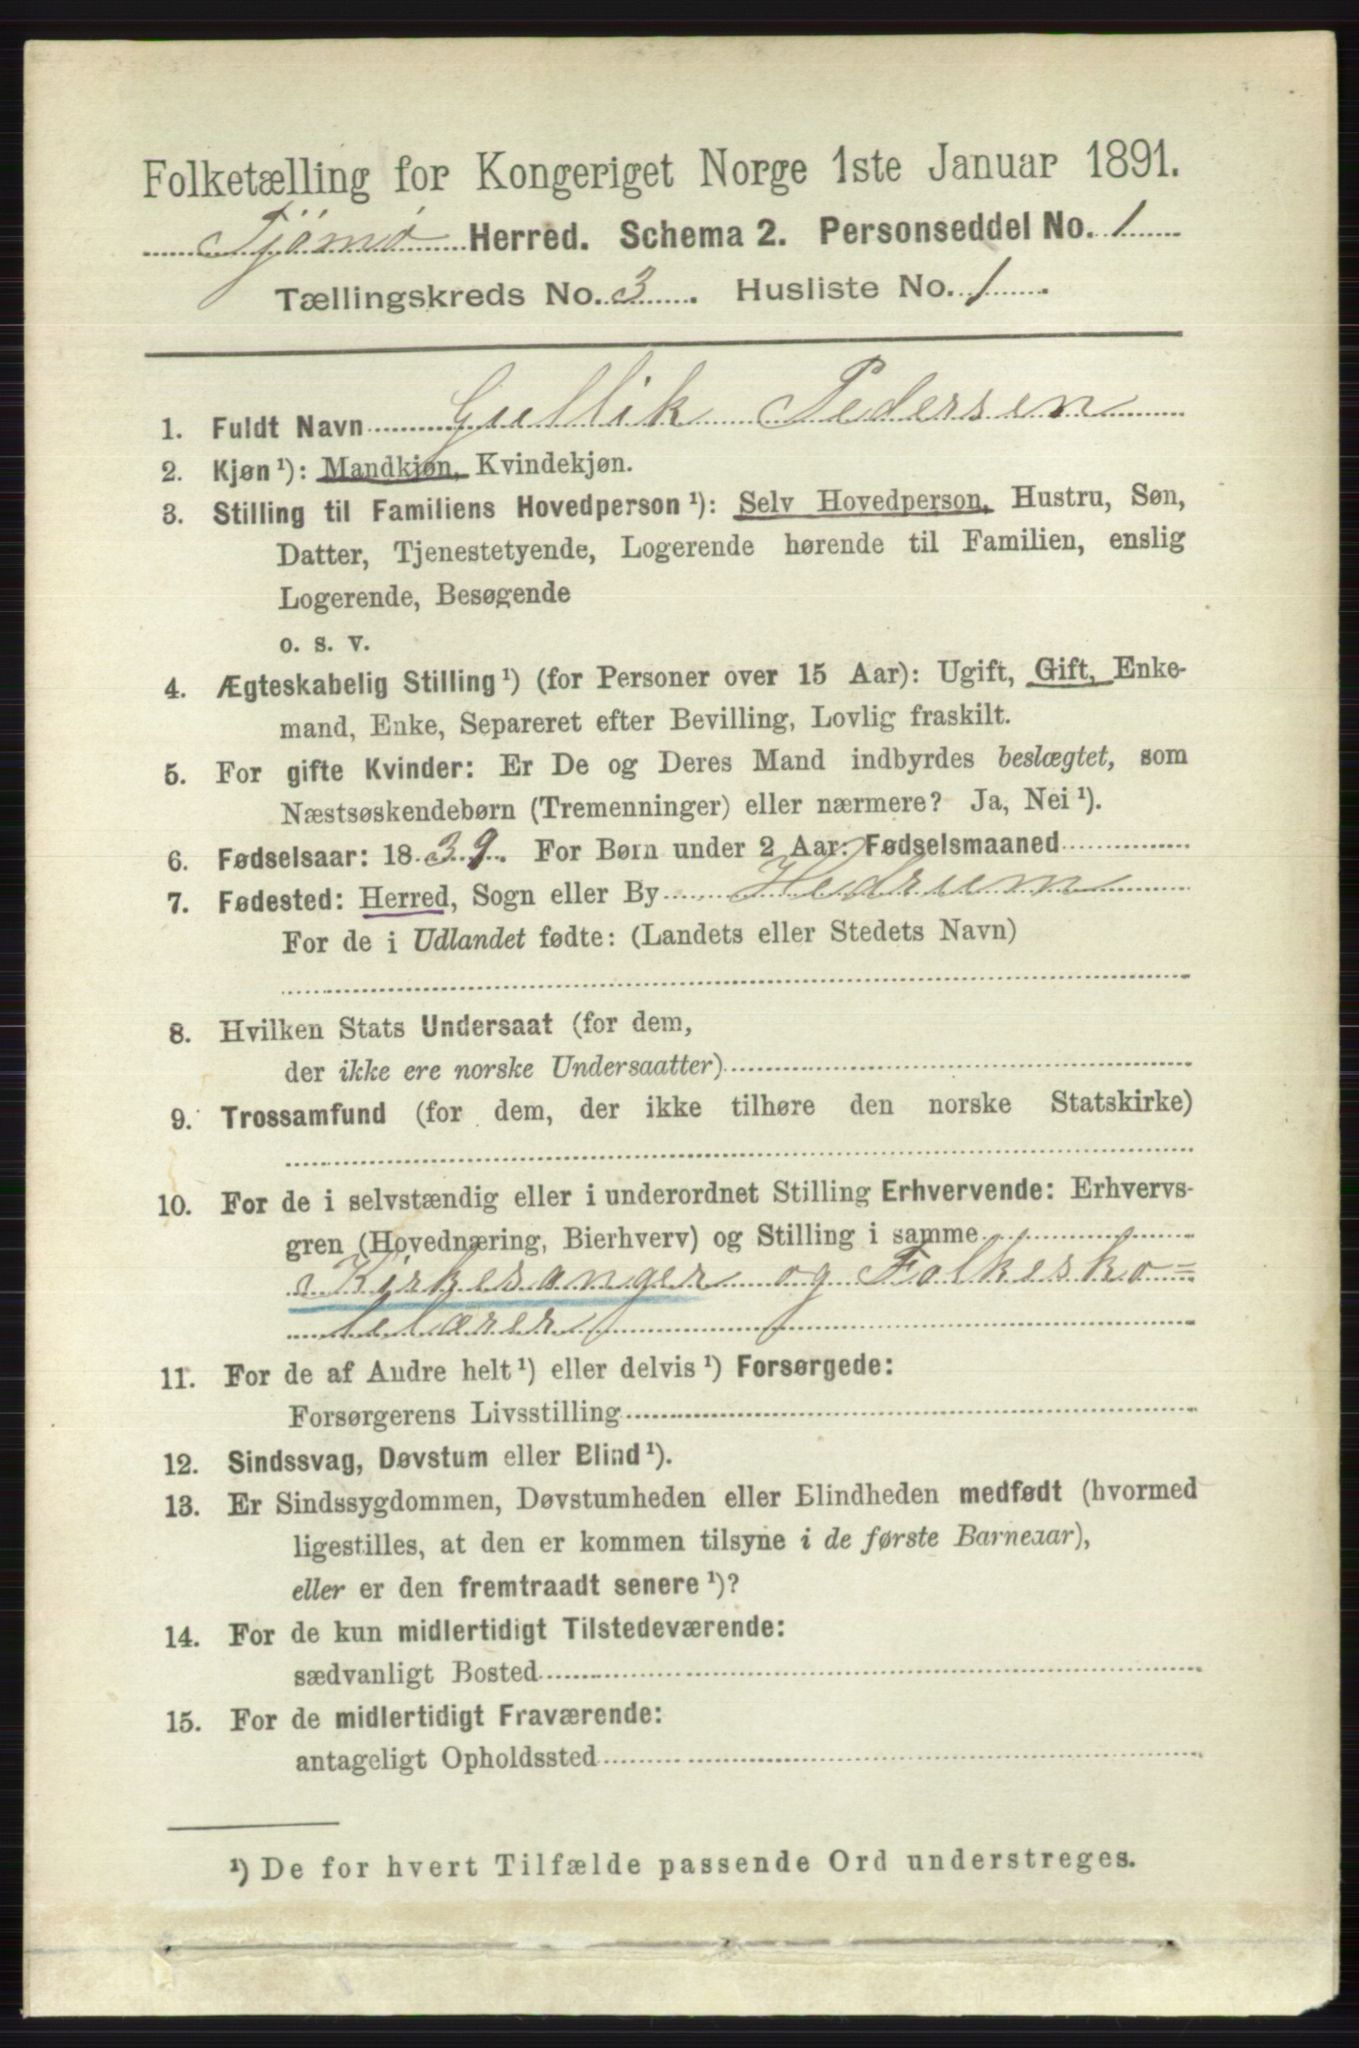 Folketælling for Kongeriget Norge 1ste Januar 1891.
Tjømø Herred. Schema 2. Personseddel No. 1
Tællingskreds No. 3. Husliste No. 1.
1. Fuldt Navn Gullik Pedersen
2. Kjøn ¹): Mandkjøn, Kvindekjøn.
3. Stilling til Familiens Hovedperson ¹): Selv Hovedperson, Hustru, Søn,
Datter, Tjenestetyende, Logerende hørende til Familien, enslig
Logerende, Besøgende
o. s. v.
4. Ægteskabelig Stilling ¹) (for Personer over 15 Aar): Ugift, Gift, Enke-
mand, Enke, Separeret efter Bevilling, Lovlig fraskilt.
5. For gifte Kvinder: Er De og Deres Mand indbyrdes beslægtet, som
Næstsøskendebørn (Tremenninger) eller nærmere? Ja, Nei ¹).
6. Fødselsaar: 1839. For Børn under 2 Aar: Fødselsmaaned
7. Fødested: Herred, Sogn eller By Hedrum
For de i Udlandet fødte: (Landets eller Stedets Navn)
8. Hvilken Stats Undersaat (for dem,
der ikke ere norske Undersaatter)
9. Trossamfund (for dem, der ikke tilhøre den norske Statskirke)
10. For de i selvstændig eller i underordnet Stilling Erhvervende: Erhvervs-
gren (Hovednæring, Bierhverv) og Stilling i samme
Kirkesanger og Folkesko=
lelærer
11. For de af Andre helt ¹) eller delvis ¹) Forsørgede:
Forsørgerens Livsstilling
12. Sindssvag, Døvstum eller Blind ¹).
13. Er Sindssygdommen, Døvstumheden eller Blindheden medfødt (hvormed
ligestilles, at den er kommen tilsyne i de første Barneaar),
eller er den fremtraadt senere ¹)?
14. For de kun midlertidigt Tilstedeværende:
sædvanligt Bosted
15. For de midlertidigt Fraværende:
antageligt Opholdssted
¹) De for hvert Tilfælde passende Ord understreges.